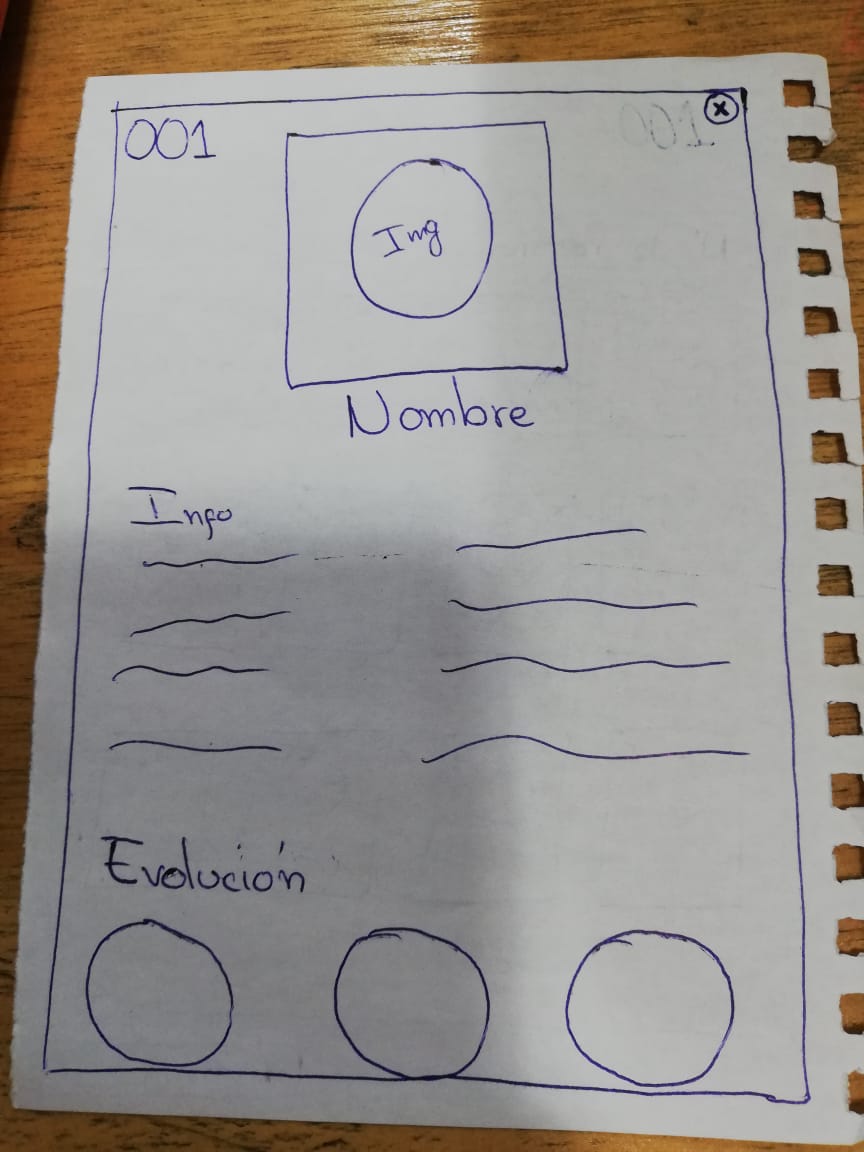 001
X
Img
Nombre
Info
Evolución